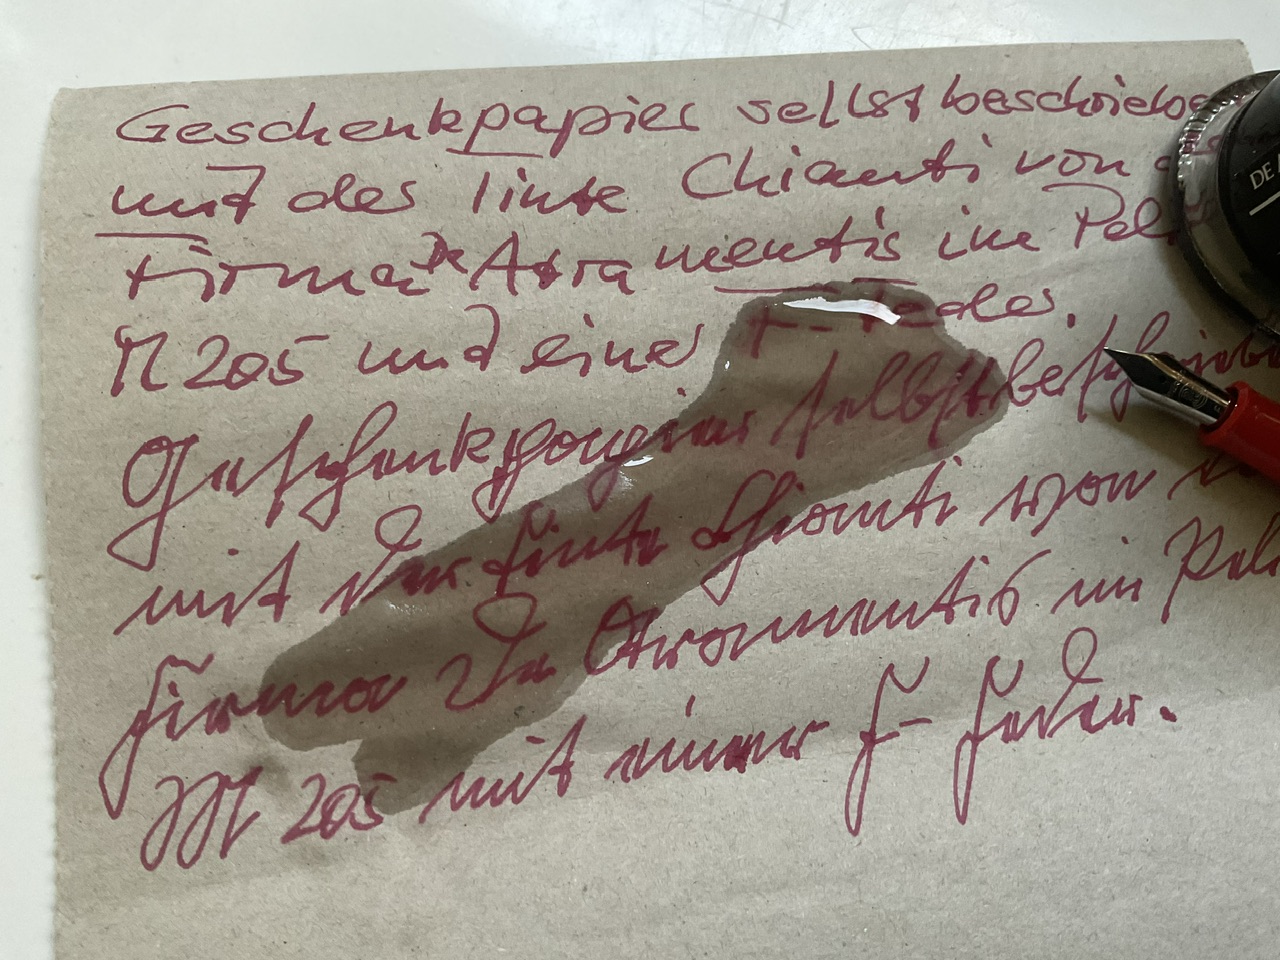 Geschenkpapier selbst beschriebe
mit der Tinte Chianti von
Firma De Atramentis im Pel
M205 und einer F-Feder.
Geschenkpapier selbst beschriebe
mit der Tinte Chianti von
Firma De Atramentis im Peli
M 205 mit einer F-Feder.
DE